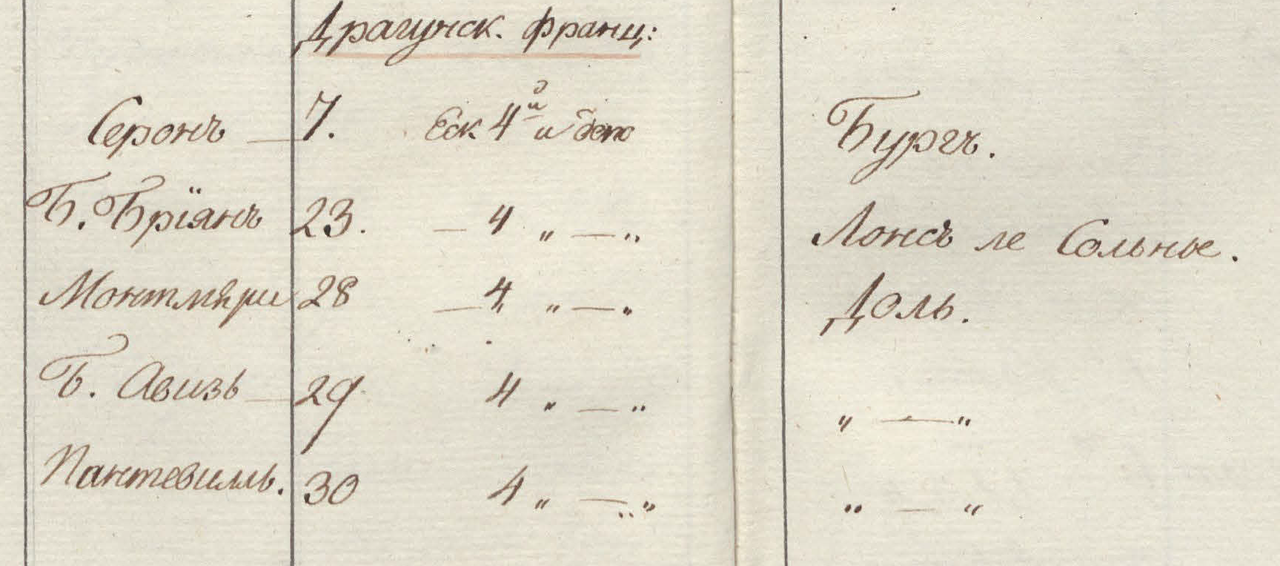 Драгунск. Франц:
Серонъ — 7. Еск 4й и депо Бургъ.
Б. Бріянъ 23. — 4 „ — „ Лонсъ ле Сольнье.
Монтмѣри 28 — 4 „ — „ Доль.
Б. Авизъ — 29. 4 „ — „ „ — „
Пантевилль. 30 4 „ — „ „ — „